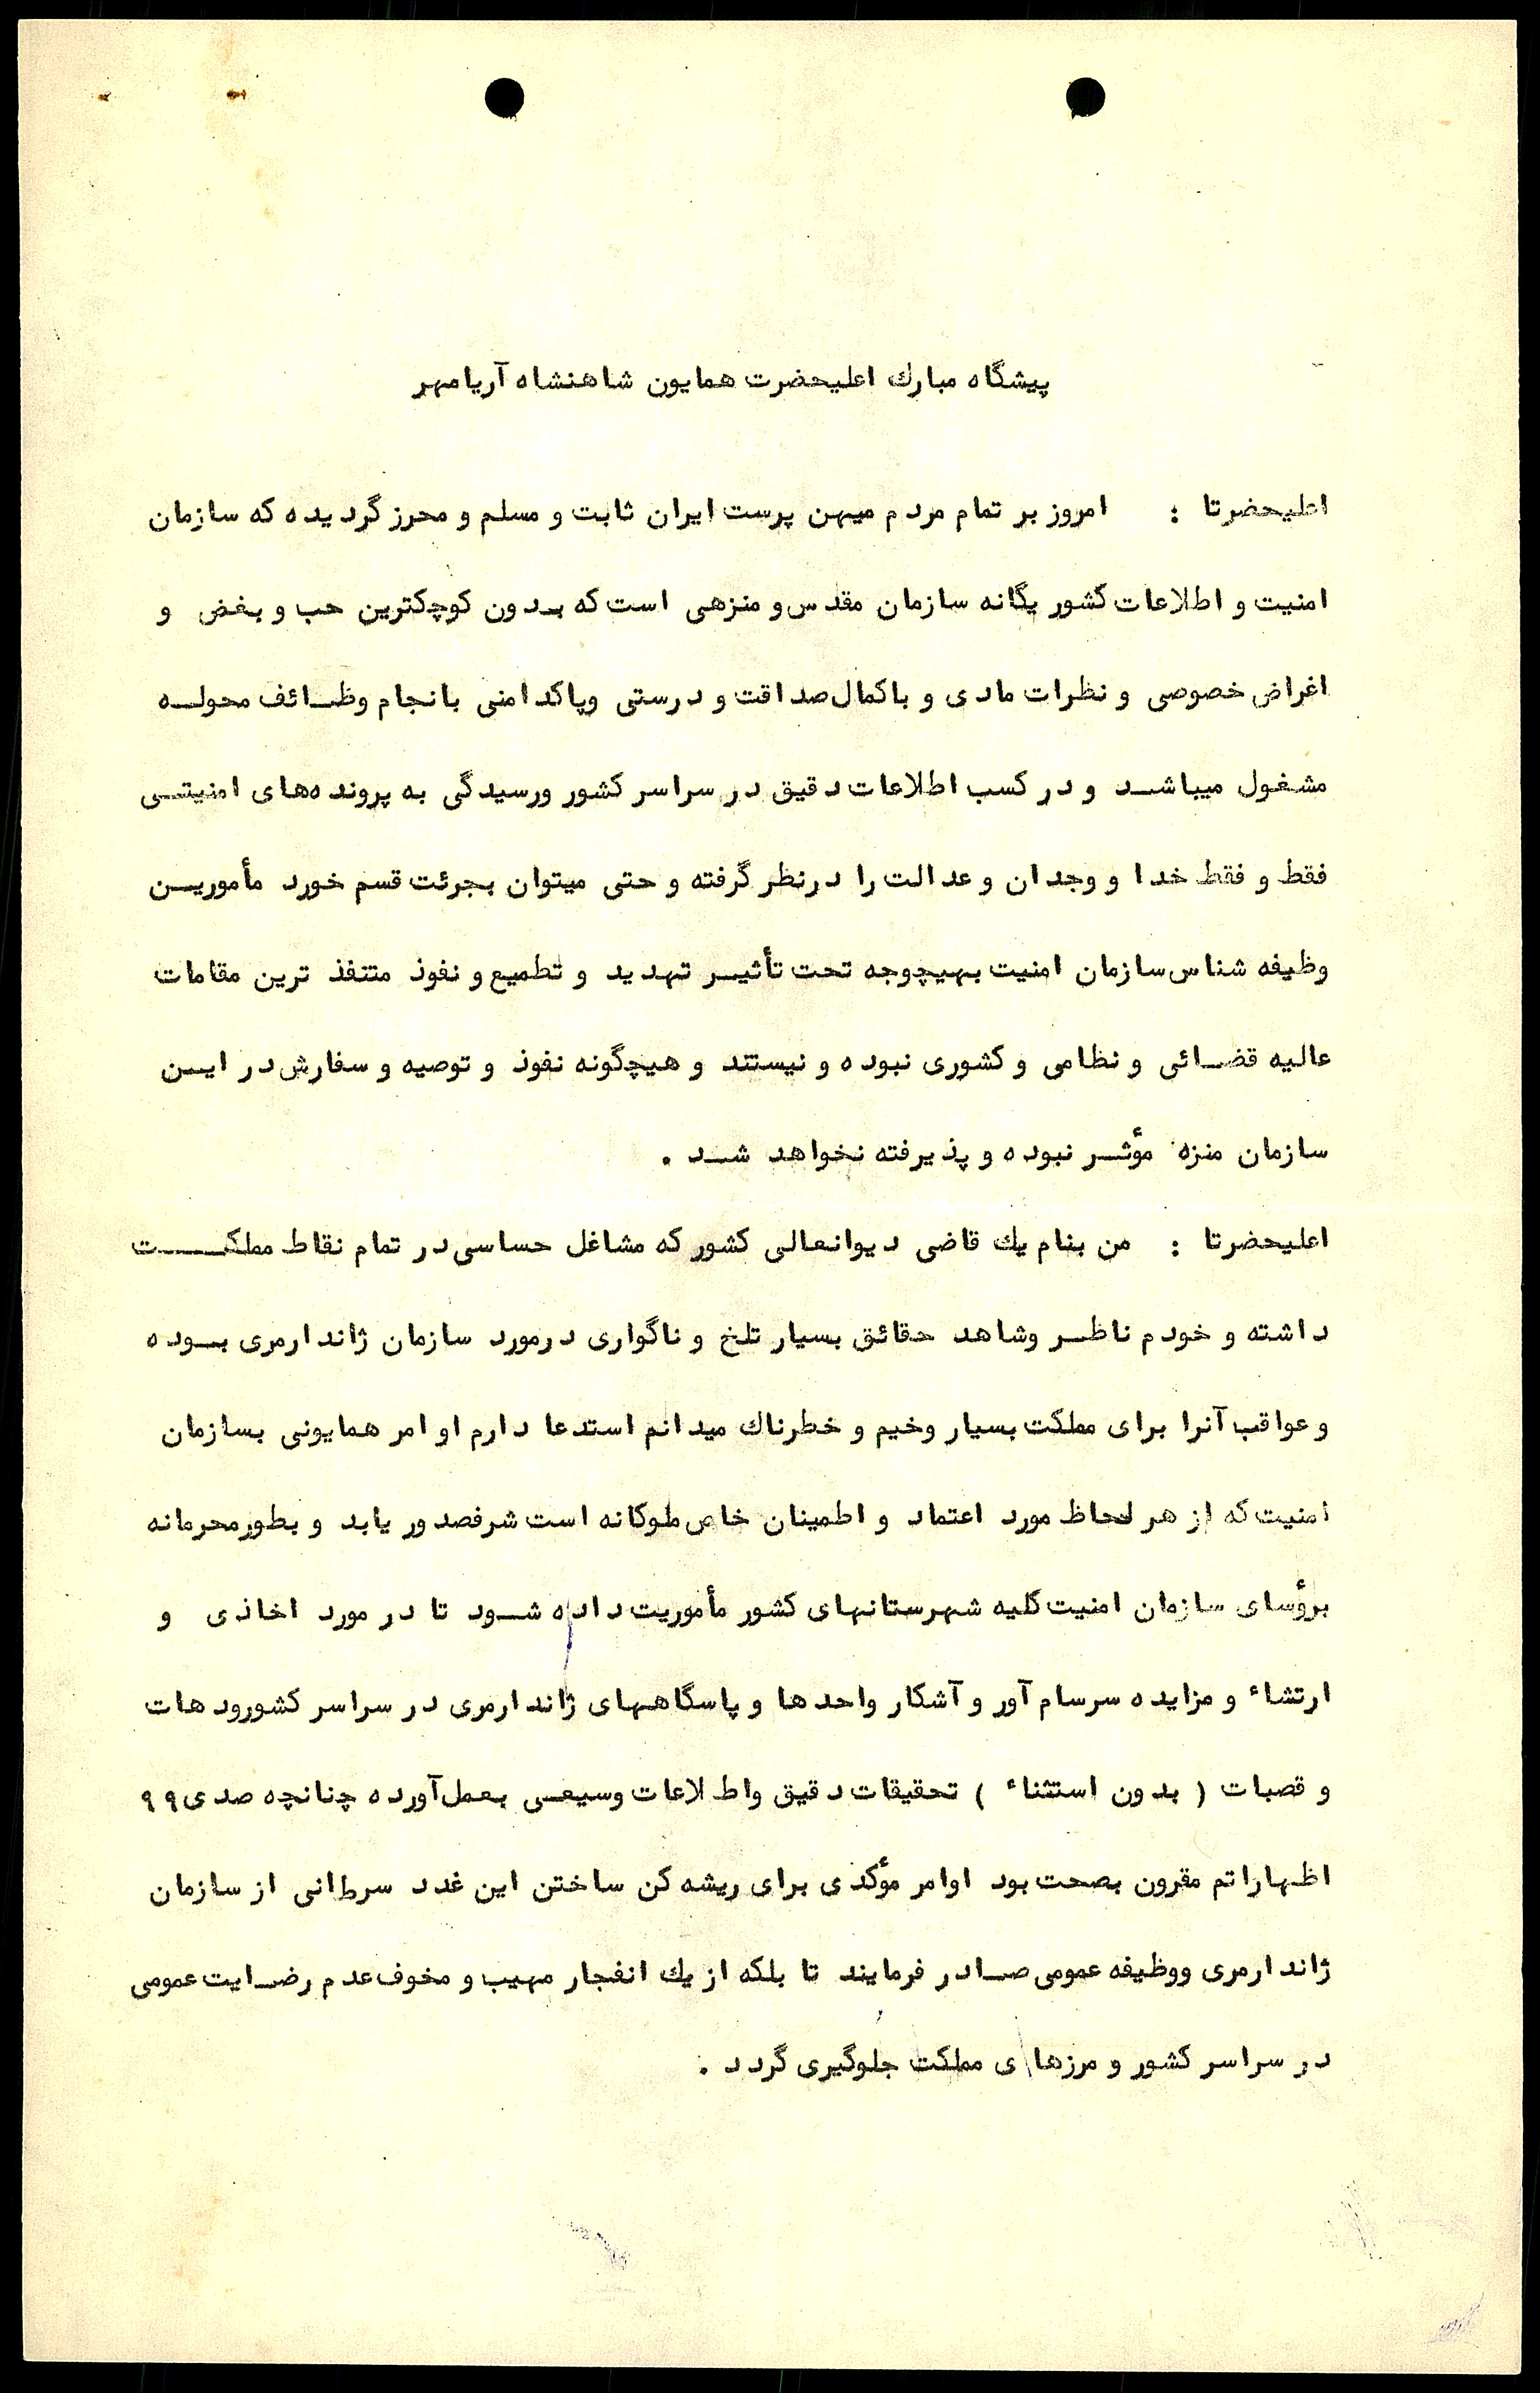 پیشگاه مبارك اعلیحضرت همایون شاهنشاه آریامهر
اعلیحضرتا : امروز بر تمام مردم میهن پرست ایران ثابت و مسلم و محرز گردیده که سازمان
امنیت و اطلاعات کشور یگانه سازمان مقدس و منزهی است که بدون کوچکترین حب و بغض و
اغراض خصوصی و نظرات مادی و باکمال صداقت و درستی وپاکدامنی بانجام وظـائف محولـه
مشغول میباشـد و در کسب اطلاعات دقیق در سراسر کشور ورسیدگی به پرونده‌های امنیتـی
فقط و فقط خدا و وجدان و عدالت را درنظر گرفته و حتی میتوان بجرئت قسم خورد مأموریـن
وظیفه شناس سازمان امنیت بهیچوجه تحت تأثیـر تهدید و تطمیع و نفوذ متنفذ ترین مقامات
عالیه قضـائی و نظامی و کشوری نبوده و نیستند و هیچگونه نفوذ و توصیه و سفارش در ایـن
سازمان منزه مؤثـر نبوده و پذیرفته نخواهد شـد .
اعلیحضرتا : من بنام یك قاضی دیوانعالی کشور که مشاغل حساسی در تمام نقاط مملکــت
داشته و خودم ناظـر وشاهد حقائق بسیار تلخ و ناگواری درمورد سازمان ژاندارمری بـوده
و عواقب آنرا برای مملکت بسیار وخیم و خطرناك میدانم استدعا دارم اوامر همایونی بسازمان
امنیت که از هر لحاظ مورد اعتماد و اطمینان خاص ملوکانه است شرفصدور یابد و بطورمحرمانه
برؤسای سازمان امنیت کلیه شهرستانهای کشور مأموریت داده شـود تا در مورد اخاذی و
ارتشاء و مزایده سرسام آور و آشکار واحدها و پاسگاههای ژاندارمری در سراسر کشورودهات
و قصبات ( بدون استثناء ) تحقیقات دقیق واطلاعات وسیعـی بعمل آورده چنانچه صدی ۹۹
اظهاراتم مقرون بصحت بود اوامر مؤکدی برای ریشه کن ساختن این غدد سرطانی از سازمان
ژاندارمری ووظیفه عمومی صـادر فرمایند تا بلکه از یك انفجار مهیب و مخوف عدم رضـایت عمومی
در سراسر کشور و مرزهای مملکت جلوگیری گردد .